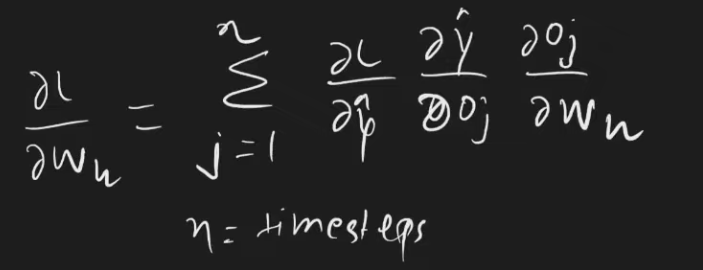 ∂L/∂W_h = Σ_{j=1}^{n} ∂L/∂ŷ ∂ŷ/∂O_j ∂O_j/∂W_h
n = timesteps